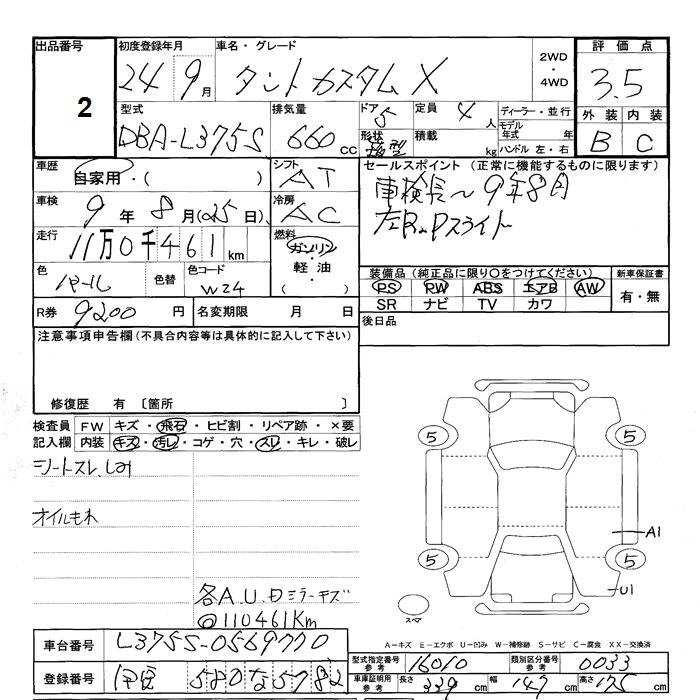 出品番号 初度登録年月 車名・グレード 2WD・4WD 評価点
2 24 9月 タントカスタムX 3.5
型式 排気量 ドア 5 定員 4人 ディーラー・並行 外装 内装
DBA-L375S 660cc 形状 箱型 積載 kg モデル年式 年 ハンドル 左・右 B C
車歴 自家用・( ) シフト AT セールスポイント (正常に機能するものに限ります)
車検 9年8月(25日) 冷房 AC 車検長〜9年8月
走行 11万0千461km 燃料 ガソリン・軽油・( ) 左R.Pスライド
色 パール 色替 色コード W24 装備品(純正品に限り○をつけてください) 新車保証書
PS PW ABS エアB AW 有・無
SR ナビ TV カワ
R券 9200円 名変期限 月 日 後日品
注意事項申告欄(不具合内容等は具体的に記入して下さい)
修復歴 有 〔箇所 〕
検査員 FW キズ・飛石・ヒビ割・リペア跡・×要
記入欄 内装 キズ・汚レ・コゲ・穴・スレ・キレ・破レ
シートスレ、しみ
オイルもれ
5 5
A1
5 5
U1
スペア
各A.U.Dミラーキズ
◎110461Km
A-キズ E-エクボ U-凹み W-補修跡 S-サビ C-腐食 XX-交換済
車台番号 L375S-0569770 型式指定番号 参考 16010 類別区分番号 参考 0033
登録番号 伊豆 580 な5782 車庫証明用 参考 長さ 339cm 幅 147cm 高さ 175cm